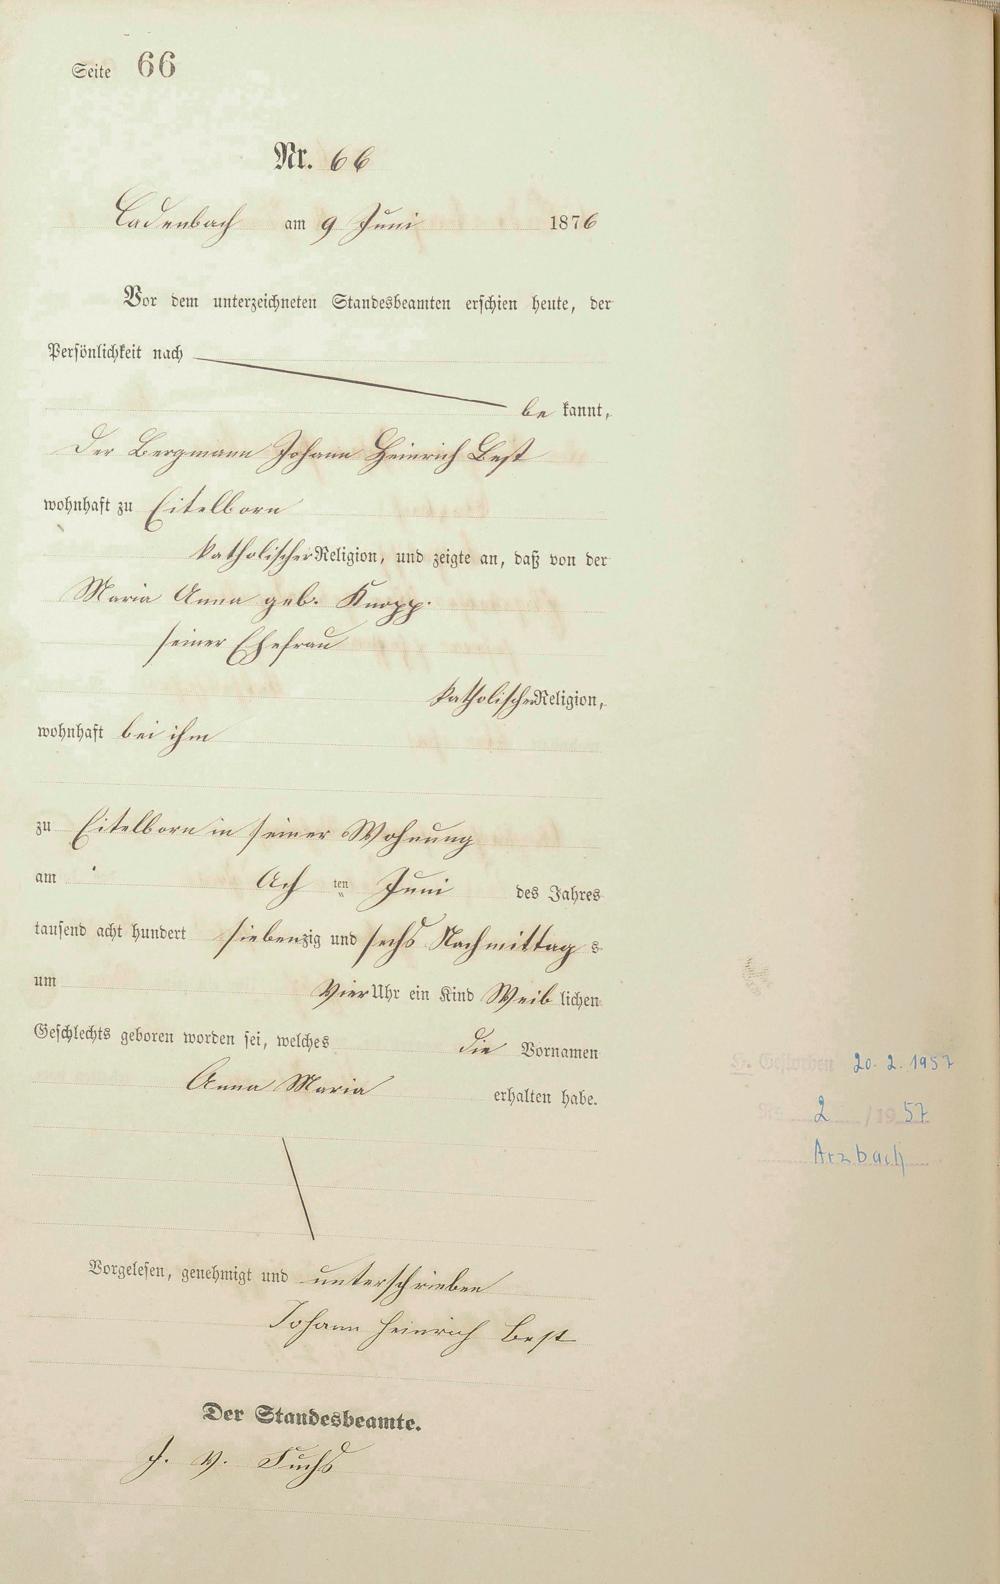 Seite 66
Nr. 66
Cadenbach am 9 Juni 1876
Vor dem unterzeichneten Standesbeamten erschien heute, der
Persönlichkeit nach
be kannt,
Der Bergmann Johann Heinrich Best
wohnhaft zu Eitelborn
katholischer Religion, und zeigte an, daß von der
Maria Anna geb. Knopp.
seiner Ehefrau
katholischer Religion,
wohnhaft bei ihm
zu Eitelborn in seiner Wohnung
am Ach ten Juni des Jahres
tausend acht hundert siebenzig und sechs Nachmittag s
um Vier Uhr ein Kind Weib lichen
Geschlechts geboren worden sei, welches die Vornamen
Anna Maria erhalten habe.
Vorgelesen, genehmigt und unterschrieben
Johann Heinrich Best
Der Standesbeamte.
J. V. Fuchs
Gestorben 20. 2. 1957
Nr. 2 /1957
Arzbach